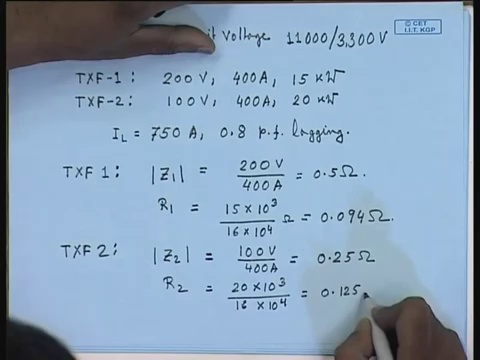 it Voltage 11000/3,300V
© CET
I.I.T. KGP
TXF-1: 200 V, 400A, 15 KW
TXF-2: 100V, 400A, 20 KW
I_L = 750 A, 0.8 p.f. lagging.
TXF 1: |Z₁| = 200 V / 400A = 0.5Ω.
R₁ = 15 × 10³ / 16 × 10⁴ Ω = 0.094Ω.
TXF 2: |Z₂| = 100V / 400A = 0.25Ω
R₂ = 20 × 10³ / 16 × 10⁴ = 0.125